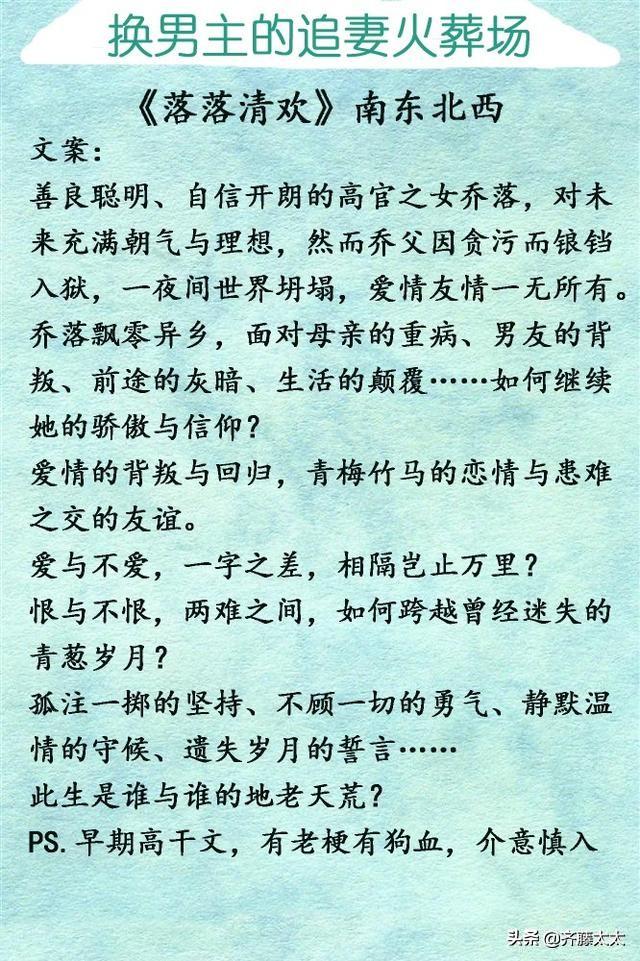 换男主的追妻火葬场
《落落清欢》南东北西
文案：
善良聪明、自信开朗的高官之女乔落，对未
来充满朝气与理想，然而乔父因贪污而锒铛
入狱，一夜间世界坍塌，爱情友情一无所有。
乔落飘零异乡，面对母亲的重病、男友的背
叛、前途的灰暗、生活的颠覆……如何继续
她的骄傲与信仰？
爱情的背叛与回归，青梅竹马的恋情与患难
之交的友谊。
爱与不爱，一字之差，相隔岂止万里？
恨与不恨，两难之间，如何跨越曾经迷失的
青葱岁月？
孤注一掷的坚持、不顾一切的勇气、静默温
情的守候、遗失岁月的誓言……
此生是谁与谁的地老天荒？
PS. 早期高干文，有老梗有狗血，介意慎入
头条 @齐藤太太